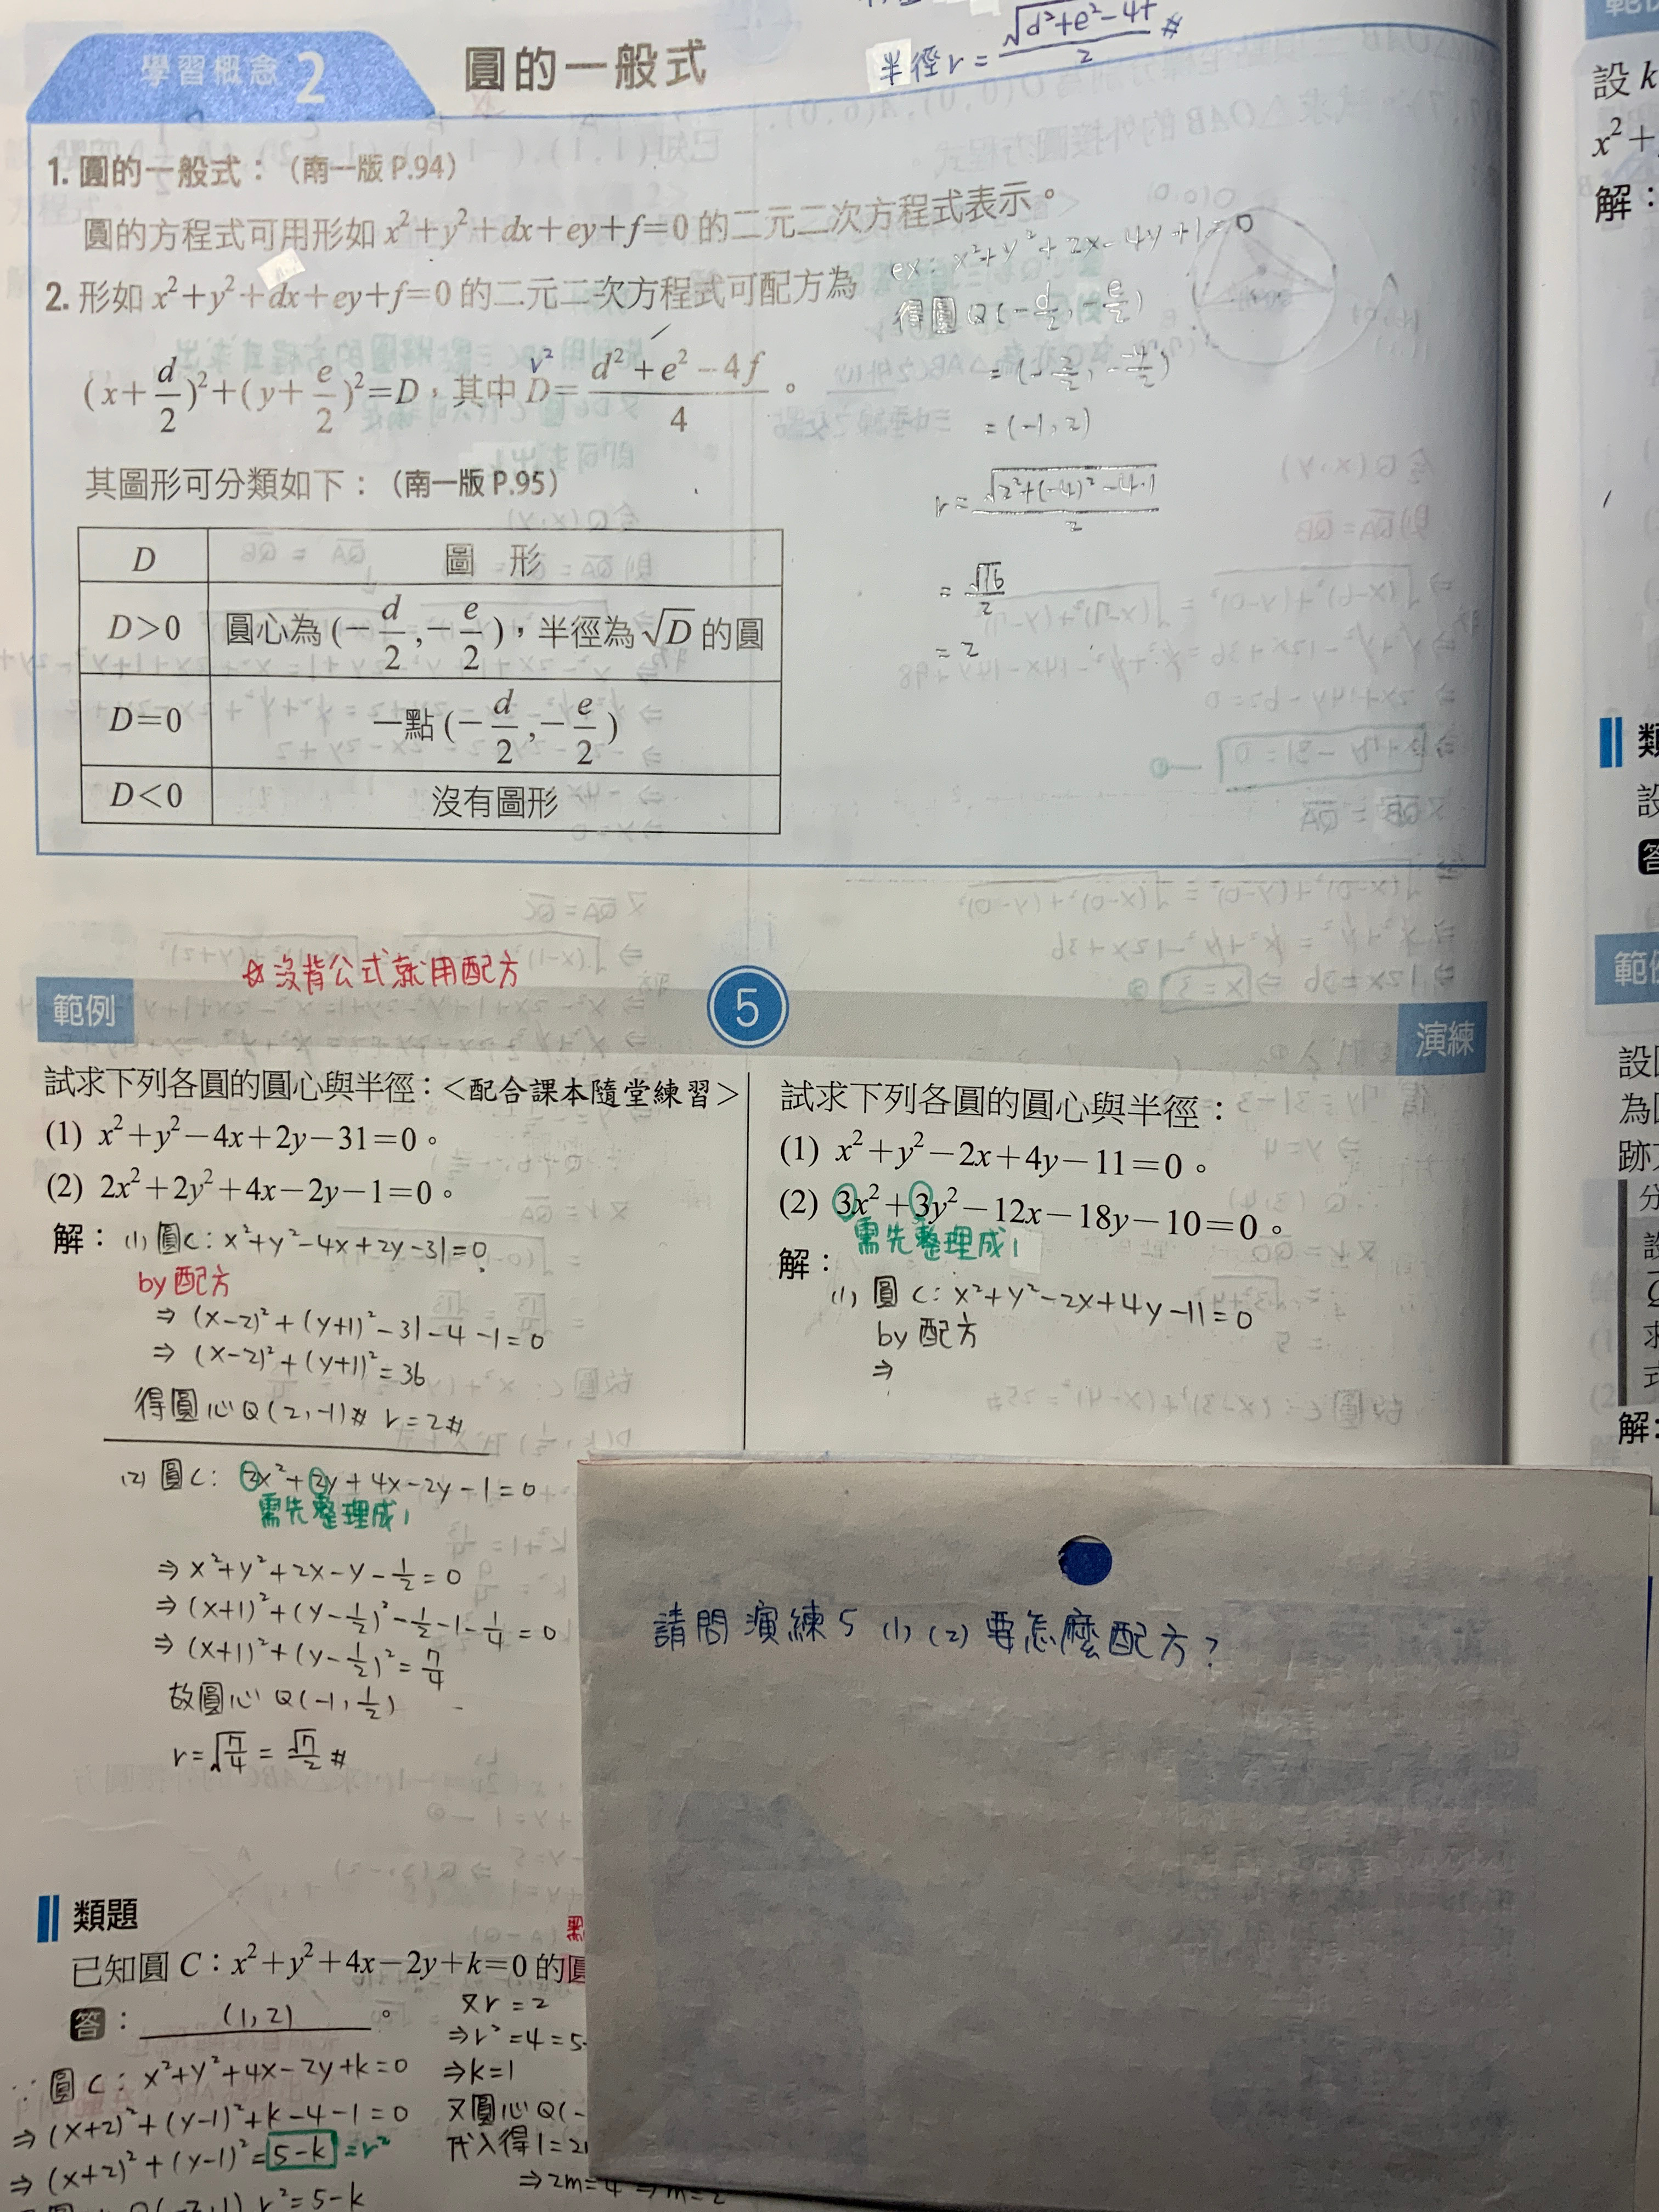 半徑 r = √(d²+e²-4f) / 2 #
學習概念 2 圓的一般式
1. 圓的一般式:(南一版 P.94)
圓的方程式可用形如 x²+y²+dx+ey+f=0 的二元二次方程式表示。
2. 形如 x²+y²+dx+ey+f=0 的二元二次方程式可配方為
(x+d/2)²+(y+e/2)²=D,其中 D=(d²+e²-4f)/4。
r²
其圖形可分類如下:(南一版 P.95)
D 圖 形
D>0 圓心為 (-d/2,-e/2),半徑為 √D 的圓
D=0 一點 (-d/2,-e/2)
D<0 沒有圖形
ex: x²+y²+2x-4y+1=0
得圓 Q(-d/2, -e/2)
= (-2/2, --4/2)
= (-1, 2)
r = √(2²+(-4)²-4·1) / 2
= √16 / 2
= 2
☆沒背公式就用配方
範例 5 演練
試求下列各圓的圓心與半徑:<配合課本隨堂練習>
(1) x²+y²-4x+2y-31=0。
(2) 2x²+2y²+4x-2y-1=0。
解:(1) 圓C: x²+y²-4x+2y-31=0
by 配方
⇒ (x-2)²+(y+1)²-31-4-1=0
⇒ (x-2)²+(y+1)²=36
得圓心 Q(2,-1)# r=2#
(2) 圓C: 2x²+2y+4x-2y-1=0
需先整理成1
⇒ x²+y²+2x-y-1/2=0
⇒ (x+1)²+(y-1/2)²-1/2-1-1/4=0
⇒ (x+1)²+(y-1/2)²=7/4
故圓心 Q(-1, 1/2)
r=√(7/4) = √7/2 #
試求下列各圓的圓心與半徑:
(1) x²+y²-2x+4y-11=0。
(2) 3x²+3y²-12x-18y-10=0。
需先整理成1
解:
(1) 圓 C: x²+y²-2x+4y-11=0
by 配方
⇒
請問演練5 (1)(2) 要怎麼配方?
類題
已知圓 C:x²+y²+4x-2y+k=0 的圓
答:(1,2)。
∵圓 C: x²+y²+4x-2y+k=0
⇒ (x+2)²+(y-1)²+k-4-1=0
⇒ (x+2)²+(y-1)²=5-k=r²
r²=5-k
又 r=2
⇒ r²=4=5-
⇒ k=1
又圓心 Q(-
代入得 1=2
⇒ 2m=4 ⇒ m=2
設 k
x²+
解:
類
設
答
範
設
為
跡
分
解: